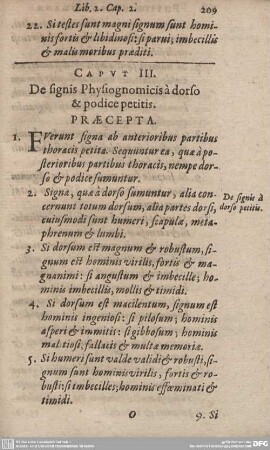 Lib. 2. Cap. 2. 209
22. Si testes sunt magni signum sunt homi-
nis fortis & libidinosi: si parvi; imbecillis
& malis moribus præditi.
CAPVT III.
De signis Physiognomicis à dorso
& podice petitis.
PRÆCEPTA.
1. FVerunt signa ab anterioribus partibus
thoracis petita. Sequuntur ea, quæ à po-
sterioribus partibus thoracis, nempe dor-
so & podice sumuntur.
2. Signa, quæ à dorso sumuntur, alia con-
cernunt totum dorsum, alia partes dorsi,
cuiusmodi sunt humeri, scapulæ, meta-
phrenum & lumbi.
De signis à
dorso petitis.
3. Si dorsum est magnum & robustum, si-
gnum est hominis virilis, fortis & ma-
gnanimi: si angustum & imbecille; ho-
minis imbecillis, mollis & timidi.
4. Si dorsum est macilentum, signum est
hominis ingeniosi: si pilosum; hominis
asperi & immitis: si gibbosum; hominis
malitiosi, fallacis & multæ memoriæ.
5. Si humeri sunt valde validi & robusti, si-
gnum sunt hominis virilis, fortis & ro-
busti: si imbecilles; hominis effœminati &
timidi.
O 9. Si
DFG